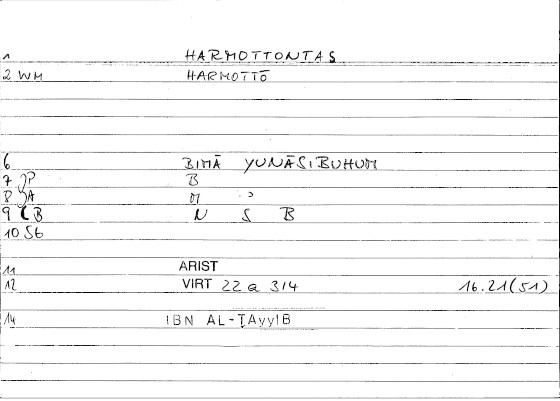 1 HARMOTTONTAS
2 WM HARMOTTŌ
6 BIMĀ YUNĀSIBUHUM
7 P B
8 A M ʾ
9 B N S B
10 St
11 ARIST
12 VIRT 22 a 3/4 16.21(51)
14 IBN AL-ṬAyyIB